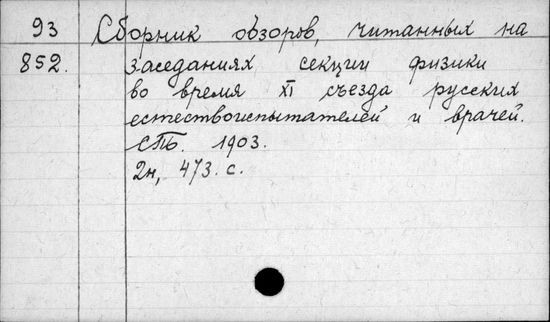 93 Сборник обзоров, читанных на
852. заседаниях секции физики
во время XI съезда русских
естествоиспытателей и врачей.
СПб. 1903.
2н, 473. с.